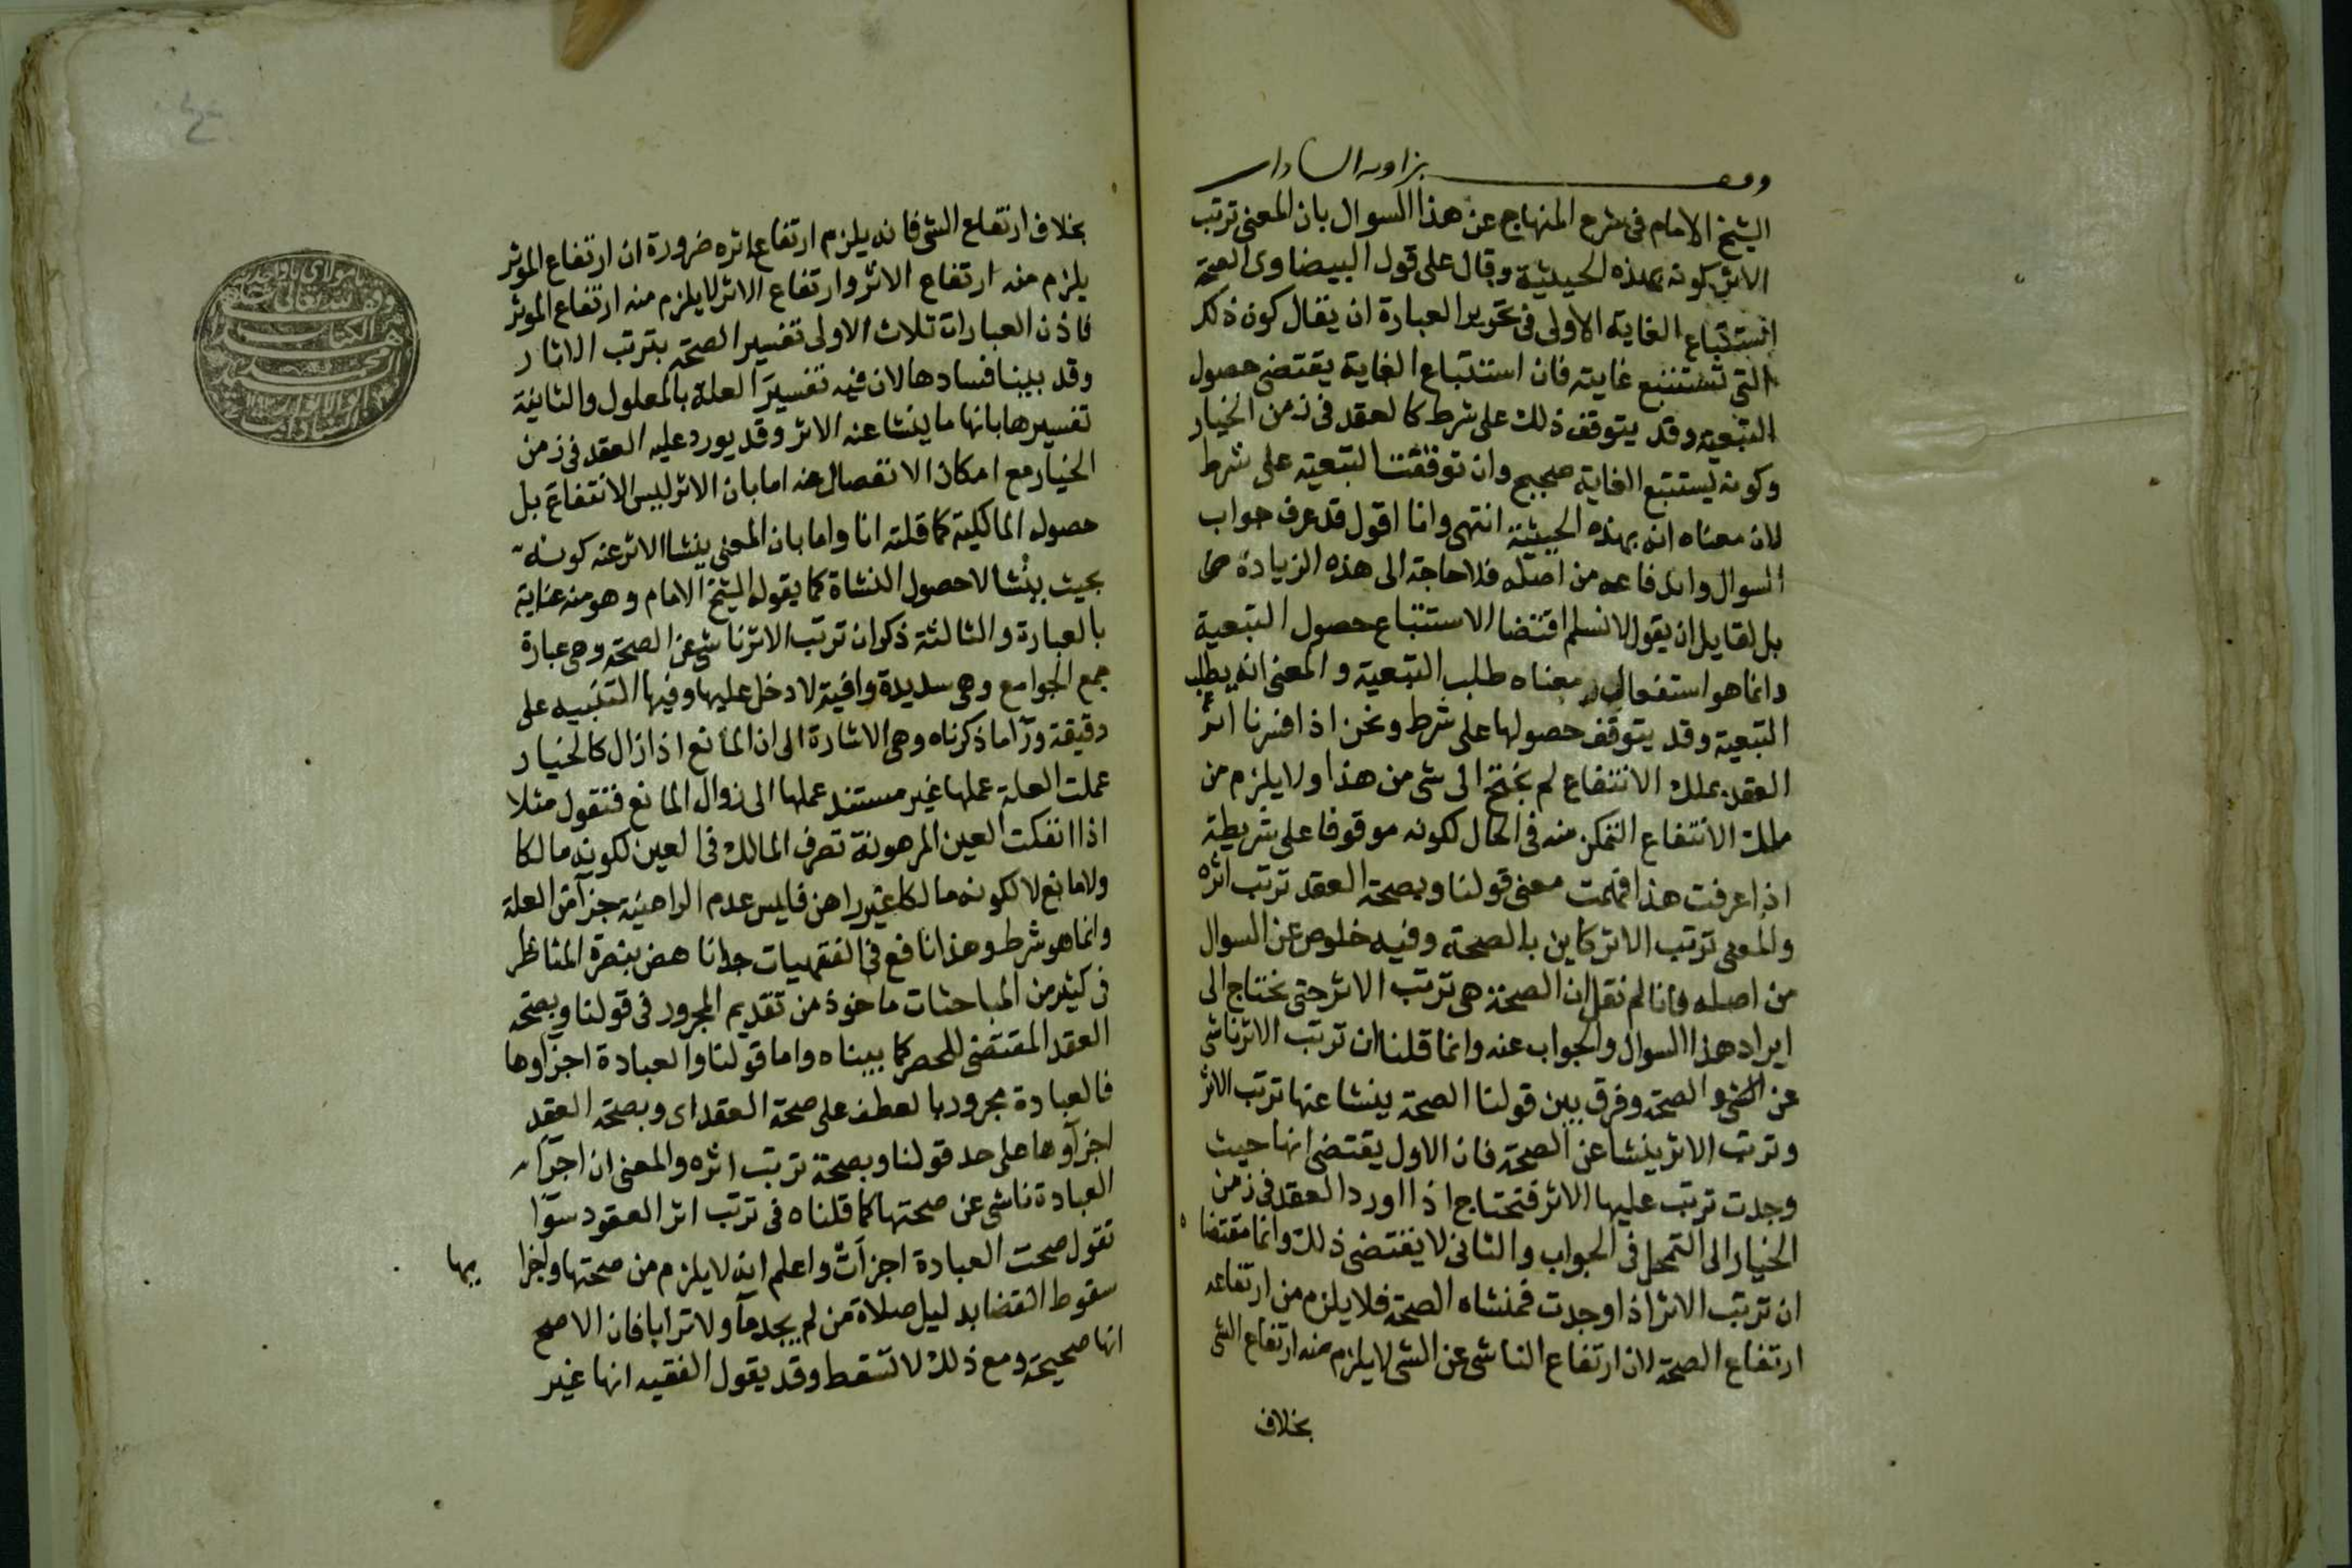 وقف بزاويه السادات
الشيخ الامام فى شرح المنهاج عن هذا السوال بان المعنى ترتب
الاثر كونه بهذه الحيثية وقال على قول البيضاوى الصحة
استتباع الغاية الاولى فى تحرير العبارة ان يقال كون ذلك
التى تستتبع غايته فان استتباع الغاية يقتضى حصول
التبعية وقد يتوقف ذلك على شرط كالعقد فى زمن الخيار
وكونه يستتبع الغاية صحيح وان توقفت التبعية على شرط
لان معناه انه بهذه الحيثية انتهى وانا اقول قد عرف جواب
السوال واندفاعه من اصله فلا حاجة الى هذه الزيادة
بل لقايل ان يقول لا نسلم اقتضا الاستتباع حصول التبعية
وانما هو استفعال معناه طلب التبعية والمعنى انه يطلب
التبعية وقد يتوقف حصولها على شرط ونحن اذا فسرنا اثر
العقد بملك الانتفاع لم نحتج الى شى من هذا ولا يلزم من
ملك الانتفاع التمكن منه فى الحال لكونه موقوفا على شريطة
اذا عرفت هذا فهمت معنى قولنا وبصحة العقد ترتب اثره
والمعنى ترتب الاثر كاين بالصحة وفيه خلوص عن السوال
من اصله فانا لم نقل ان الصحة هى ترتب الاثر حتى نحتاج الى
ايراد هذا السوال والجواب عنه وانما قلنا ان ترتب الاثر ناشى
عن الصحة وفرق بين قولنا الصحة ينشا عنها ترتب الاثر
وترتب الاثر ينشا عن الصحة فان الاول يقتضى انها حيث
وجدت ترتب عليها الاثر فتحتاج اذا اورد العقد فى زمن
الخيار الى التمحل فى الجواب والثانى لا يقتضى ذلك وانما مقتضاه
ان ترتب الاثر اذا وجدت فمنشاه الصحة فلا يلزم من ارتفاعه
ارتفاع الصحة لان ارتفاع الناشى عن الشى لا يلزم منه ارتفاع الشى
بخلاف
بخلاف ارتفاع الشى فانه يلزم ارتفاع اثره ضرورة ان ارتفاع الموثر
يلزم منه ارتفاع الاثر وارتفاع الاثر لا يلزم منه ارتفاع الموثر
فاذن العبارات ثلاث الاولى تفسير الصحة بترتب الاثار
وقد بينا فسادها لان فيه تفسير العلة بالمعلول والثانية
تفسيرها بانها ما ينشا عنه الاثر وقد يورد عليه العقد فى زمن
الخيار مع امكان الانفصال عنه اما بان الاثر ليس الانتفاع بل
حصول المالكية كما قلته انا واما بان المعنى ينشا الاثر عنه كونه
بحيث ينشا لا حصول النشاة كما يقوله الشيخ الامام وهو منه عناية
بالعبارة والثالثة ذكر ان ترتب الاثر ناشى عن الصحة وهى عبارة
جمع الجوامع وهى سديدة وافية لا دخل عليها وفيها التنبيه على
دقيقة ورآ ما ذكرناه وهى الاشارة الى ان المانع اذا زال كالخيار
عملت العلة عملها غير مستند عملها الى زوال المانع فنقول مثلا
اذا انفكت العين المرهونة تصرف المالك فى العين لكونه مالكا
ولا مانع لا لكونه مالكا غير راهن فليس عدم الراهنية جزآ من العلة
وانما هو شرط وهذا نافع فى الفقهيات جدا ناهض بنصرة المناظر
فى كثير من المباحثات ماخوذ من تقديم المجرور فى قولنا وبصحة
العقد المقتضى للحصر كما بيناه واما قولنا والعبادة اجزاوها
فالعبادة مجرور بالعطف على صحة العقد اى وبصحة العقد
اجزآوها على حد قولنا وبصحة ترتب اثره والمعنى ان اجزآء
العبادة ناشى عن صحتها كما قلناه فى ترتب اثر العقود سوآ
نقول صحت العبادة اجزآت واعلم انه لا يلزم من صحتها واجزا يها
سقوط القضا بدليل صلاة من لم يجد مآ ولا ترابا فان الاصح
انها صحيحة ومع ذلك لا تسقط وقد يقول الفقيه انها غير